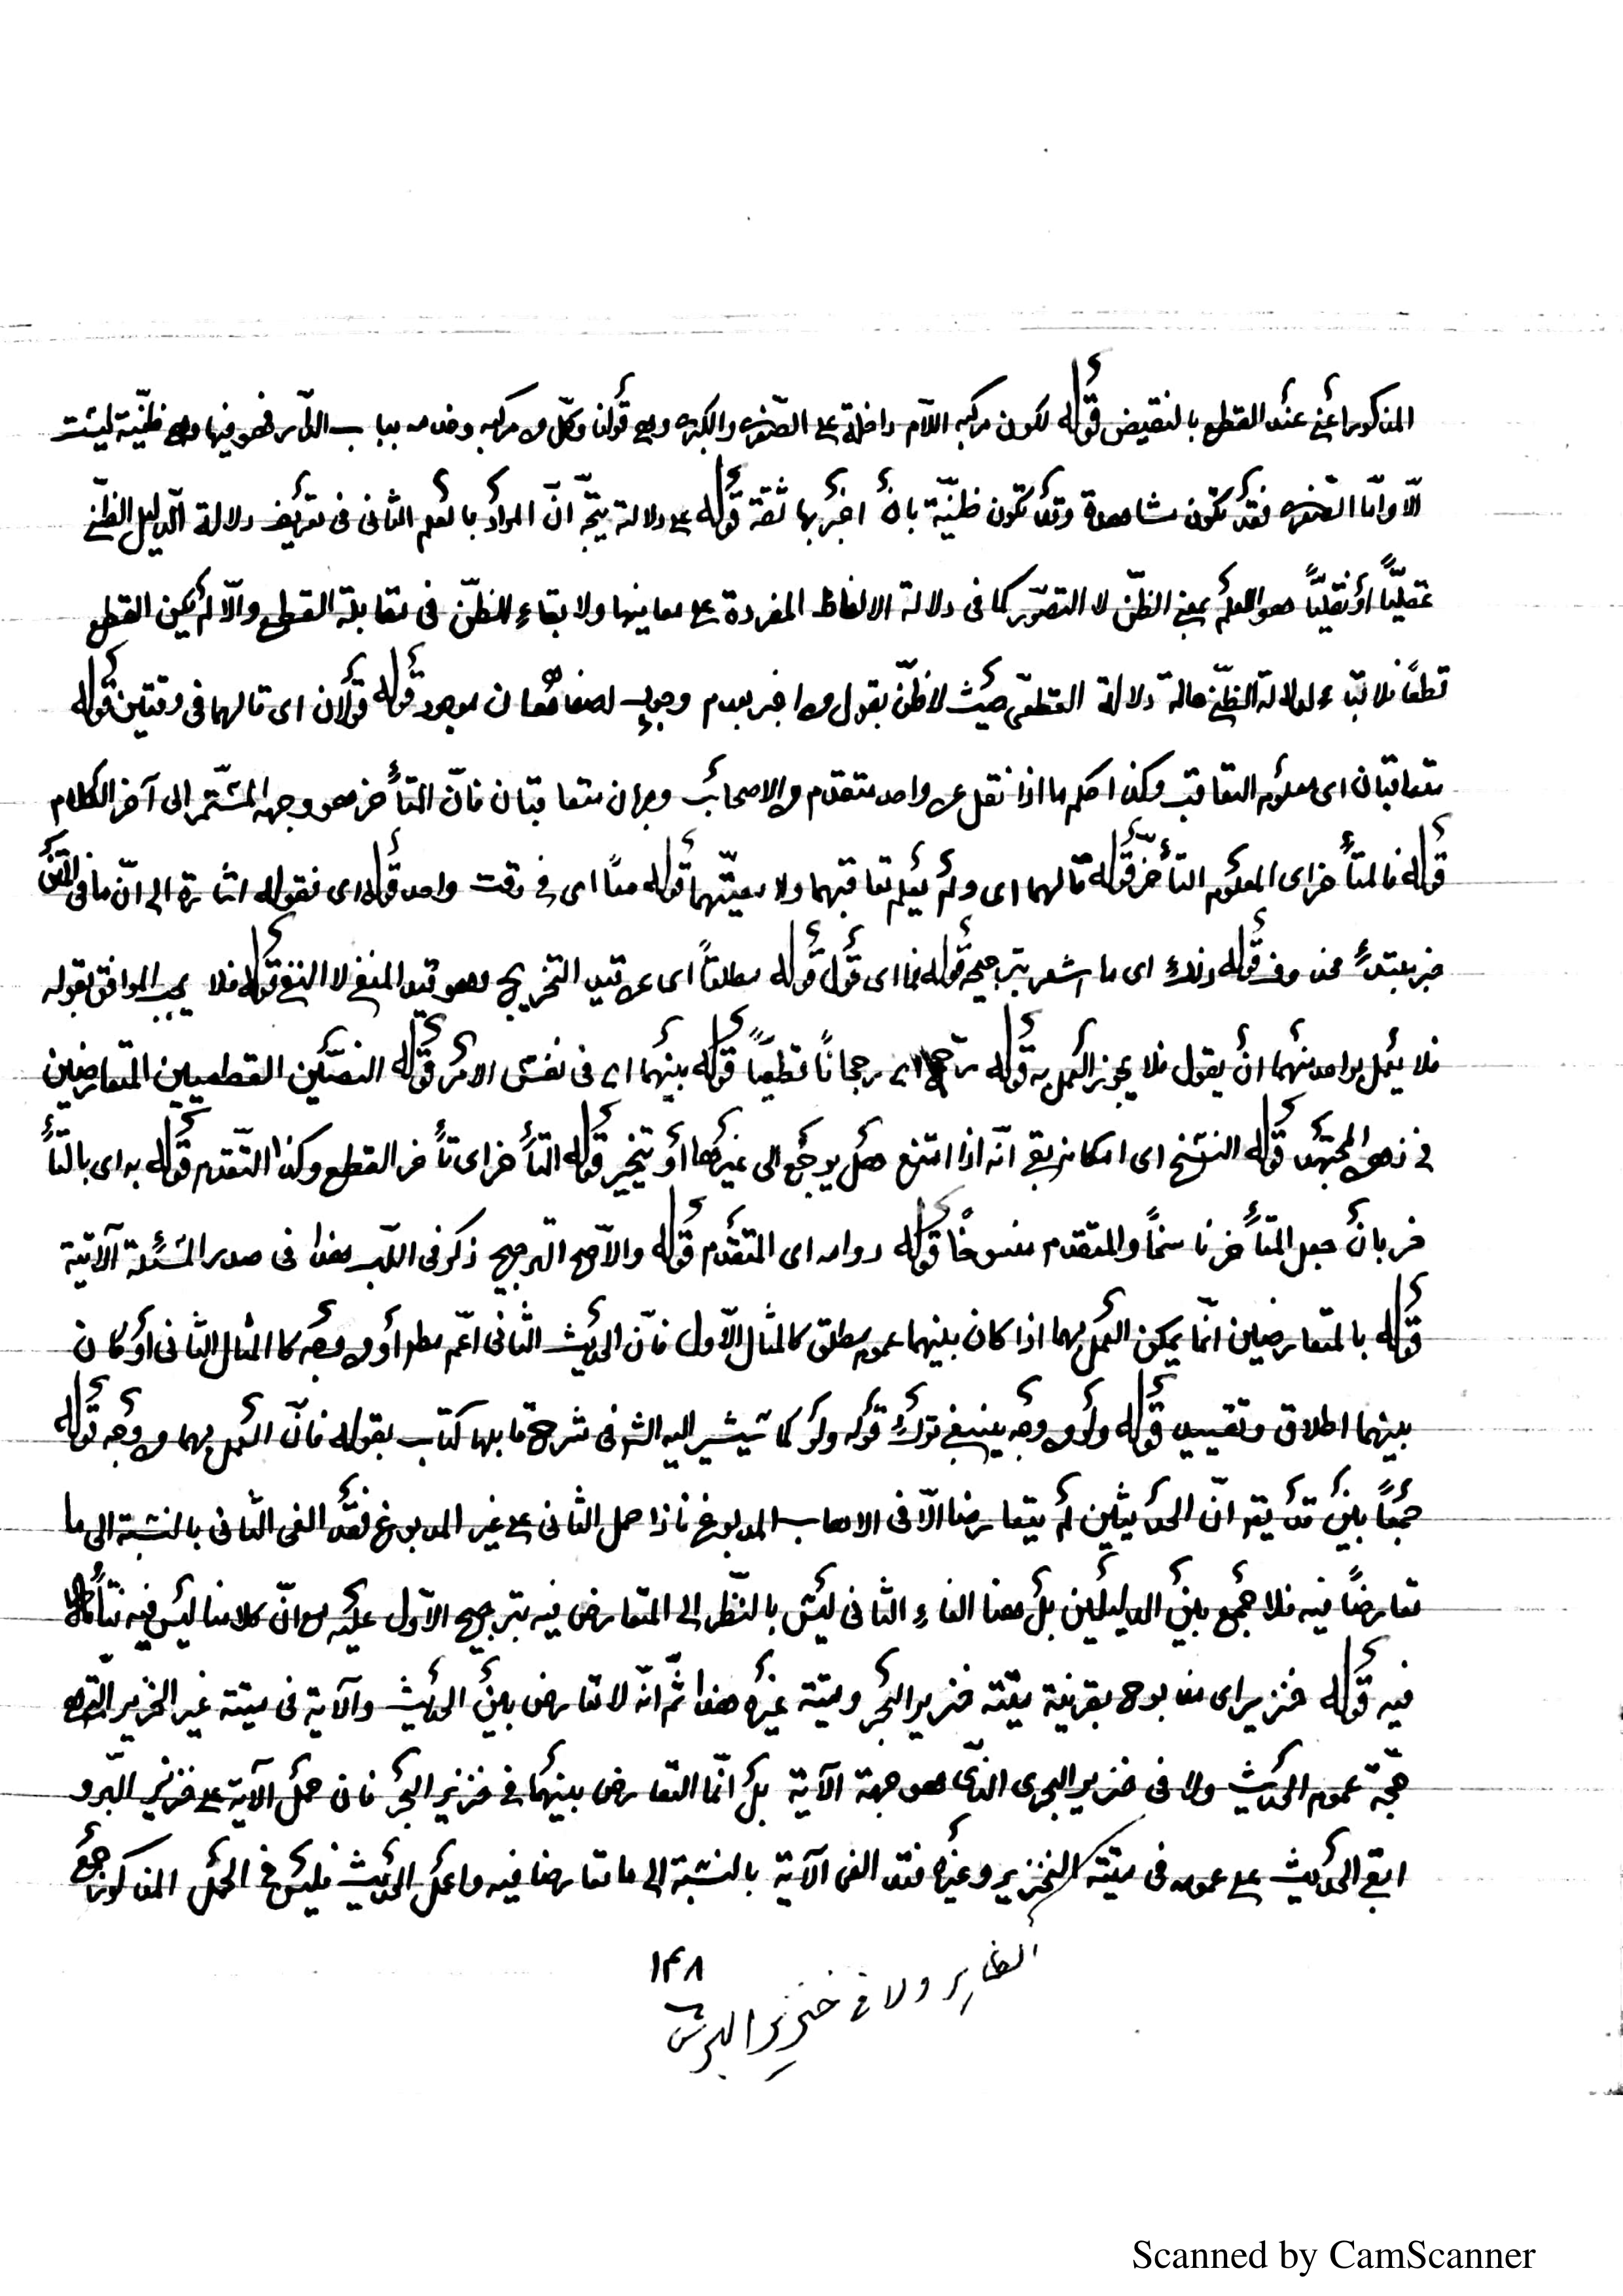 المذكور اعني عند القطع بالنقيض قوله لكون مركبه اللآم داخلة على الصّغرى والكبرى وهي قولنا وكلّ مركبه وخدمه بباب الدّار فهو فيها وهي ظنّية ليست
الّا وامّا الصّغرى فقد تكون مشاهدة وقد تكون ظنيّة بان اخبر بها ثقة قوله على دلالة يتجّه انّ المراد بالعلم الثانى فى تعريف دلالة الدّليل الظنّي
عقليّاً او نقليّاً هو العلم بمعنى الظنّ لا التصوّر كما فى دلالة الالفاظ المفردة على معانيها ولا بقاء للظنّ فى مقابلة القطع والاّ لم يكن القطع
قطعاً فلا بقاء لدلالة الظنّي حالة دلالة القطعّى حيث لا ظنّ بقول اخبر بعدم وجوب موجود قوله قولان اى قالهما فى وقتين قوله
متعاقبان اى معلوم التعاقب وكذا حكم ما اذا نقل عن واحد متقدم والاصحاب متعاقبان فانّ المتأخر هو وجهه المستمر الى آخر الكلام
قوله فالمتأخر اى المعلوم التأخّر قوله قالهما اى ولم يعلم تعاقبهما ولا معيّتهما قوله معاً اى في وقت واحد قوله اى فقوله اشارة الى انّ ما فى المتن
خبر مبتدأ محذوف قوله ذلك اى ما اشعر بترجيحه قوله فما اى قول قوله مطلقاً اى عن قيد التخريج وهو قيد المنفي لا النفي قوله فلا يجب الموافق بقوله
فلا يعمل بواحد منهما ان يقول فلا يجوز العمل به قوله اى رجحاناً قطعيّاً قوله بينهما اى فى نفس الامر قوله النصّين القطعيين المتعارضين
في ذهن المجتهد قوله النسخ اى امكانه بقي انّه اذا امتنع هل يرجع الى غيرهما او تخيير قوله التأخر اى تأخر القطع وكذا التّقدم قوله به اى بالتّأ
خر بان جعل المتأخر ناسخاً والمتقدم منسوخاً قوله دوامه اى المتقدم قوله والاصّح الترجيح ذكر فى اللّب هذا فى صدر المسئلة الآتية
قوله بالمتعارضين انّما يمكن العمل بهما اذا كان بينهما عموم مطلق كالمثال الاّول فانّ الحديث الثانى اعّم مط او من وجه كا المثال الثانى او كان
بينهما اطلاق وتقييد قوله ولو من وجه ينبغي ترك قوله ولو كما سيشير اليه الشر فى شرح قابلها كتاب بقوله فانّ العمل بهما من وجه قوله
جمعاً بين قد يقر انّ الحديثين لم يتعارضا الاّ فى الاهاب المدبوغ فاذا حمل الثانى على غير المدبوغ فقد الغى الثانى بالنسبة الى ما
تعارضاً فيه فلا جمع بين الدليلين بل هنا الغاء الثانى ليس بالنّظر الى المتعارض فيه بترجيح الاّول عليه مع انّ كلامنا ليس فيه
فيه قوله خنزير اى مذبوح بقرينة ميتته خنزير البحر وميتة غيره هذا ثّم انّه لا تعارض بين الحديث والآية فى ميتة غير الخنزير
جهة عموم الحديث ولا فى خنزير البحرى الذى هو جهة الآية بل انّما التعارض بينهما في خنزير البحر فان حمل الآية على خنزير البّر و
ابقي الحديث على عمومه فى ميتته الخنزير وغيره فقد الغى الآية بالنسبة الى ما تعارضا فيه واعمل الحديث فليس في الحمل المذكور جمع
١٣٨
الظاهر ولا فى خنزير البرى
Scanned by CamScanner